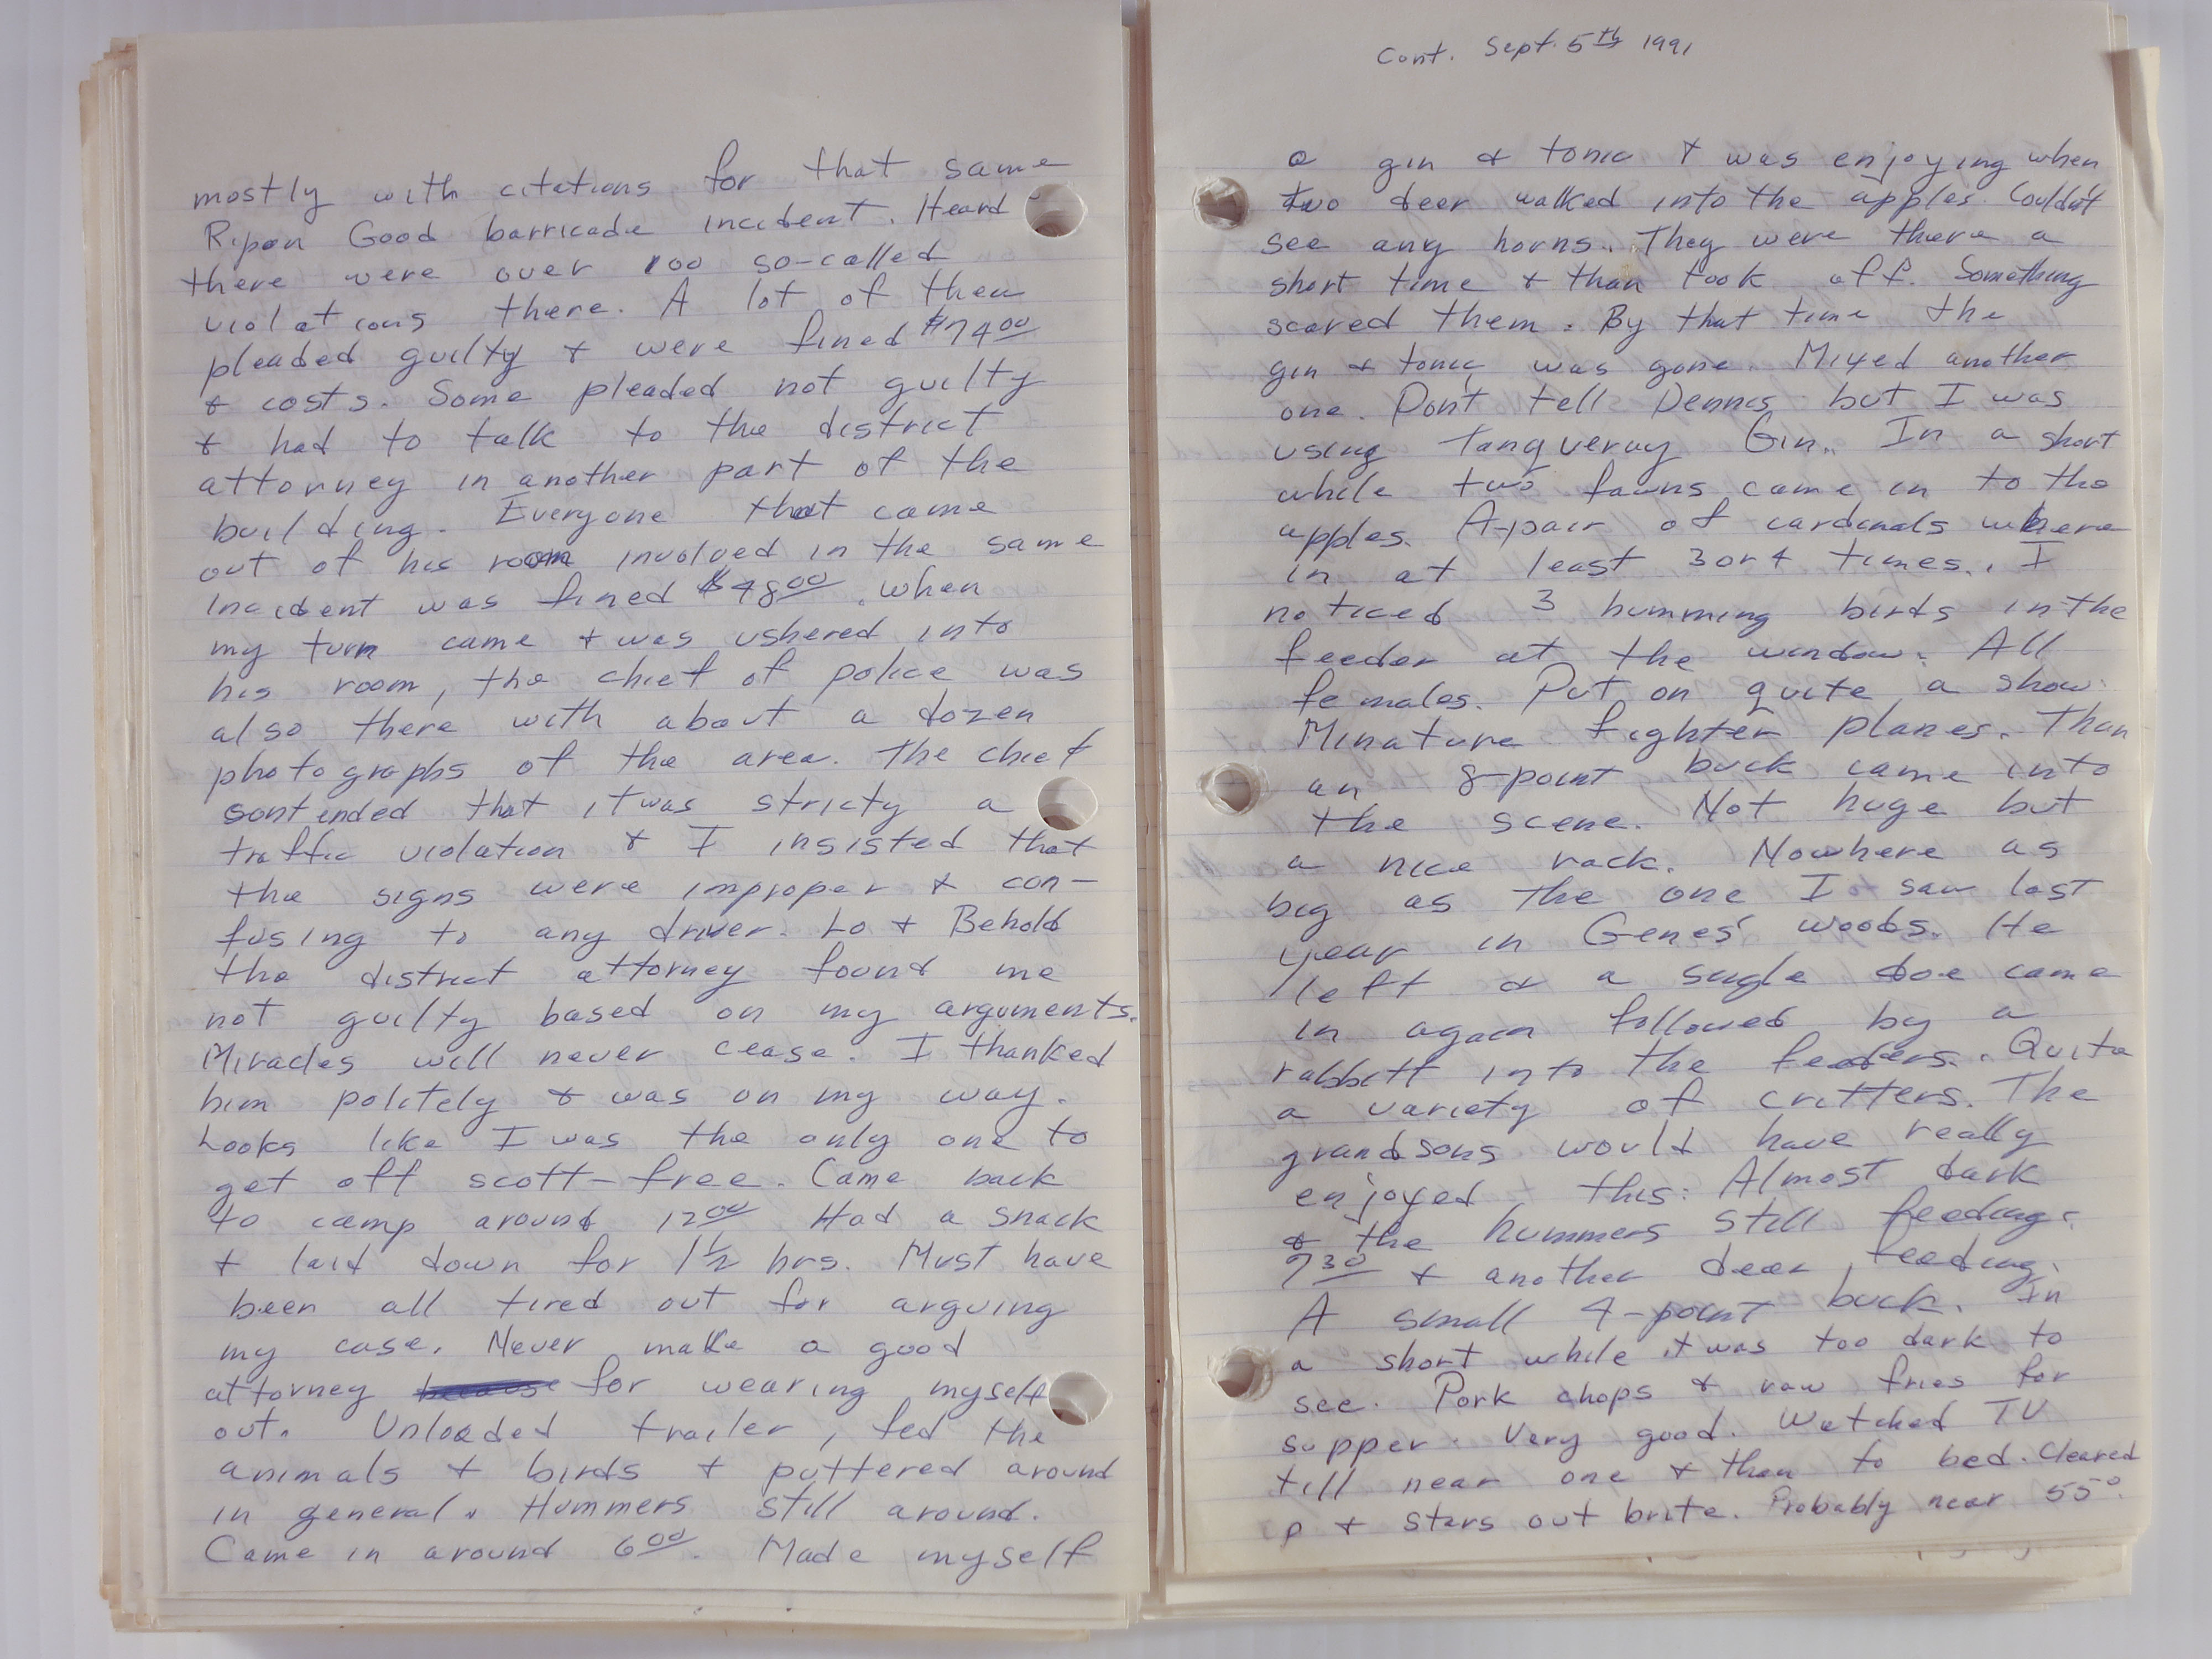 mostly with citations for that same
Ripon Good barricade incident. Heard
there were over 100 so-called
violations there. A lot of them
pleaded guilty & were fined $74.00
& costs. Some pleaded not guilty
& had to talk to the district
attorney in another part of the
building. Everyone that came
out of his room involved in the same
incident was fined $48.00. When
my turn came & was ushered into
his room, the chief of police was
also there with about a dozen
photographs of the area. The chief
contended that it was stricty a
traffic violation & I insisted that
the signs were improper & con-
fusing to any driver. Lo & Behold
the district attorney found me
not guilty based on my arguments.
Miracles will never cease. I thanked
him politely & was on my way.
Looks like I was the only one to
get off scott-free. Came back
to camp around 12 00 Had a snack
& laid down for 1 1/2 hrs. Must have
been all tired out for arguing
my case. Never make a good
attorney for wearing myself
out. Unloaded trailer, fed the
animals & birds & puttered around
in general. Hummers still around.
Came in around 6 00. Made myself
Cont. Sept. 5th 1991
a gin & tonic & was enjoying when
two deer walked into the apples. Couldn't
see any horns. They were there a
short time & than took off. Something
scared them. By that time the
gin & tonic was gone. Mixed another
one. Don't tell Dennis but I was
using Tanqueray Gin. In a short
while two fawns came in to the
apples. A pair of cardinals where
in at least 3 or 4 times. I
noticed 3 humming birds in the
feeder at the window. All
females. Put on quite a show.
Minature fighter planes. Than
an 8-point buck came into
the scene. Not huge but
a nice rack. Nowhere as
big as the one I saw last
year in Genes' woods. He
left & a single doe came
in again followed by a
rabbitt into the feeders. Quite
a variety of critters. The
grandsons would have really
enjoyed this. Almost dark
& the hummers still feeding.
7 30 & another deer feeding.
A small 4-point buck. In
a short while it was too dark to
see. Pork chops & raw fries for
supper. Very good. Watched TV
till near one & than to bed. Cleared
p & stars out brite. Probably near 55°.